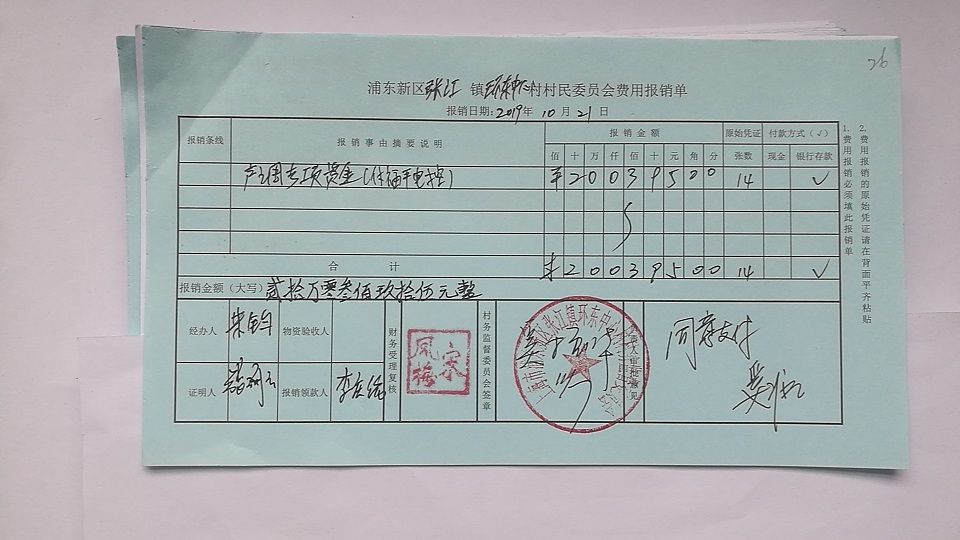 26
浦东新区张江镇环东中心村村民委员会费用报销单
报销日期：2019年10月21日
报销条线 报销事由摘要说明 报销金额 原始凭证 付款方式（√）
佰 十 万 仟 佰 十 元 角 分 张数 现金 银行存款
专项资金（付福 ¥20039500 14 √
合计 ¥20039500 14 √
报销金额（大写）贰拾万零叁佰玖拾伍元整
经办人 物资验收人 财务受理复核 村务监督委员会签章
证明人 报销领款人 李
宋凤梅
上海市浦东新区张江镇环东中心村
同意支付
1.费用报销必须填此报销单
2.费用报销的原始凭证请在背面平齐粘贴